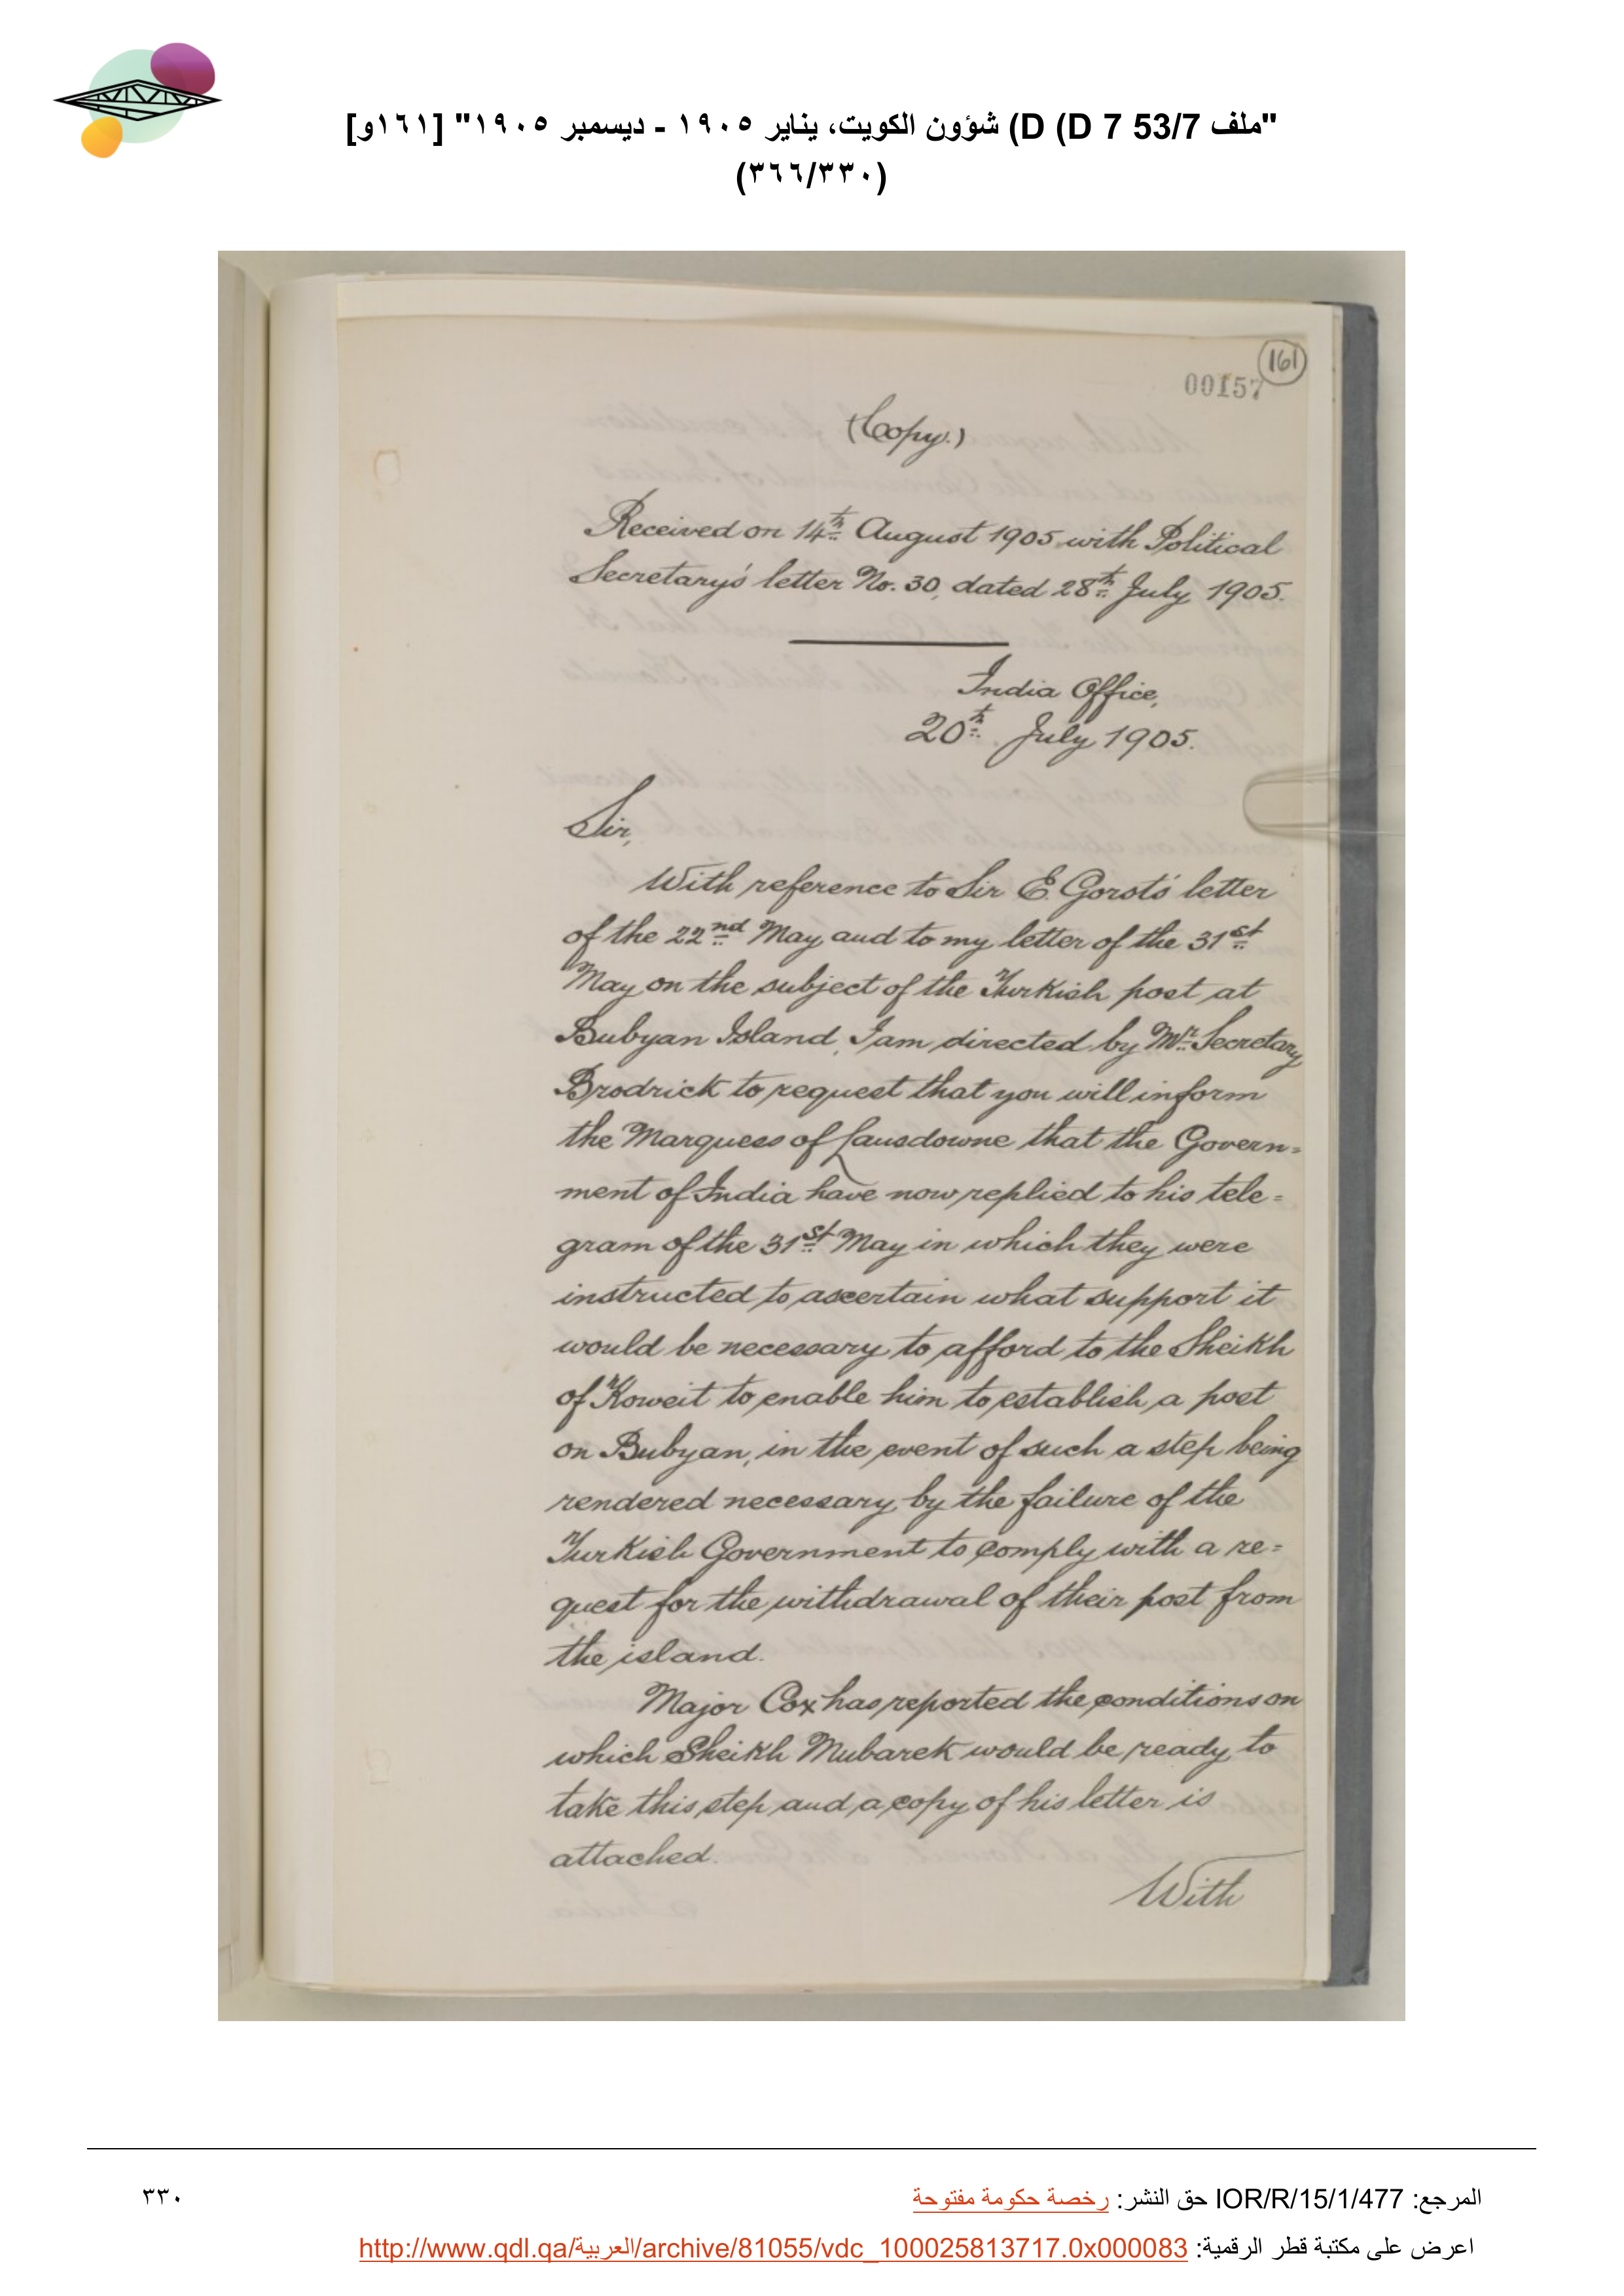 "ملف 53/7 D 7) D) شؤون الكويت، يناير ١٩٠٥ - ديسمبر ١٩٠٥" [١٦١و]
(٣٦٦/٣٣٠)
161
00157
(Copy.)
Received on 14th August 1905 with Political
Secretary's letter No. 30, dated 28th July 1905.
India Office,
20th July 1905.
Sir,
With reference to Sir E. Gorst's letter
of the 22nd May and to my letter of the 31st
May on the subject of the Turkish post at
Bubyan Island, I am directed by Mr Secretary
Brodrick to request that you will inform
the Marquess of Lansdowne that the Govern=
ment of India have now replied to his tele=
gram of the 31st May in which they were
instructed to ascertain what support it
would be necessary to afford to the Sheikh
of Koweit to enable him to establish a post
on Bubyan, in the event of such a step being
rendered necessary by the failure of the
Turkish Government to comply with a re=
quest for the withdrawal of their post from
the island.
Major Cox has reported the conditions on
which Sheikh Mubarek would be ready to
take this step and a copy of his letter is
attached.
With
المرجع: IOR/R/15/1/477 حق النشر: رخصة حكومة مفتوحة
٣٣٠
اعرض على مكتبة قطر الرقمية: http://www.qdl.qa/العربية/archive/81055/vdc_100025813717.0x000083